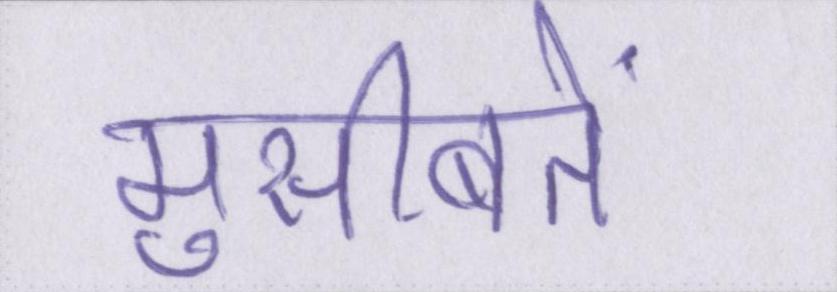 मुसीबतें